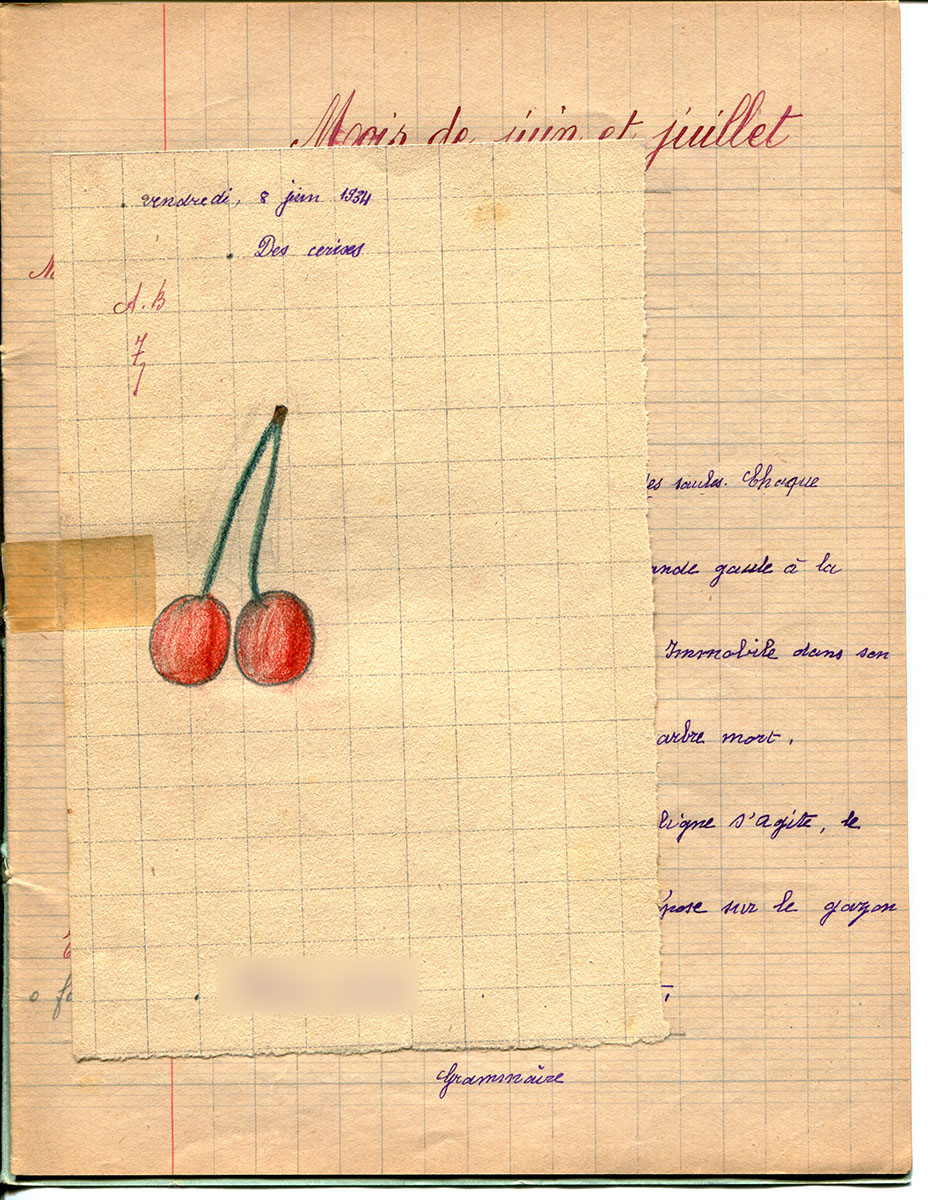 Mois de juin et juillet
vendredi, 8 juin 1934
Des cerises
A.B
7
des saules. Chaque
ande gaule à la
Immobile dans son
arbre mort,
ligne s'agite, le
épose sur le gazon
Grammaire